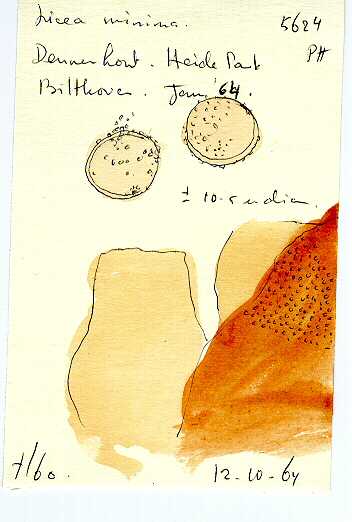 Licea minima. 5624
Dennenhout. Heide Park PH
Bilthoven. Jan. '64.
± 10.5 μ diam.
12-10-64